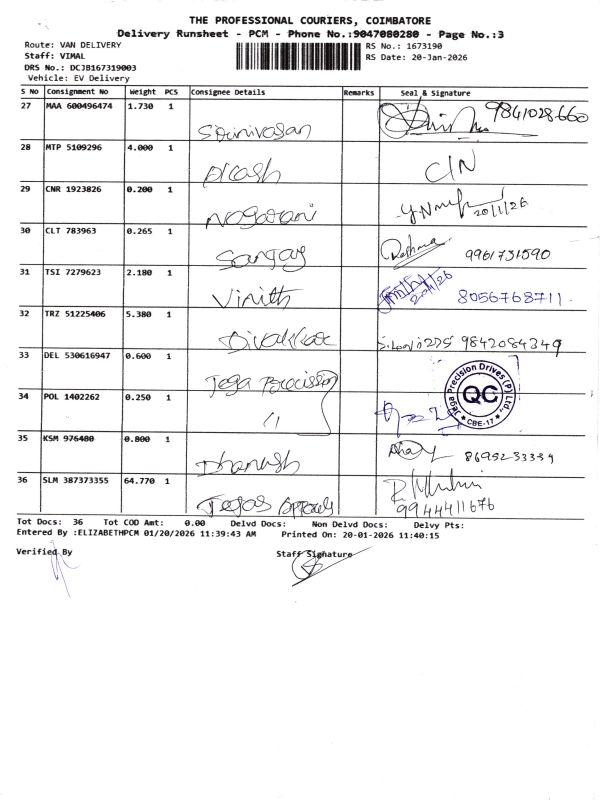 THE PROFESSIONAL COURIERS, COIMBATORE
Delivery Runsheet - PCM - Phone No.:9047080280 - Page No.:3
Route: VAN DELIVERY
Staff: VIMAL
DRS No.: DCJB167319003
Vehicle: EV Delivery
RS No.: 1673190
RS Date: 20-Jan-2026
S No Consignment No Weight PCS Consignee Details Remarks Seal & Signature
27 MAA 600496474 1.730 1 Srinivasan 9841028660
28 MTP 5109296 4.000 1 Akash C/N
29 CNR 1923826 0.200 1 Nagarani 20/1/26
30 CLT 783963 0.265 1 Sanjay Reshma 9961731590
31 TSI 7279623 2.180 1 Vinith 8056768711
32 TRZ 51225406 5.380 1 Divakkar 9842084349
33 DEL 530616947 0.600 1 Jega Precission
34 POL 1402262 0.250 1 11
Jega Precision Drives (P) Ltd., QC CBE-17
35 KSM 976480 0.800 1 Dhanush 8695233339
36 SLM 387373355 64.770 1 Tejas 9944411676
Tot Docs: 36 Tot COD Amt: 0.00 Delvd Docs: Non Delvd Docs: Delvy Pts:
Entered By :ELIZABETHPCM 01/20/2026 11:39:43 AM Printed On: 20-01-2026 11:40:15
Verified By Staff Signature